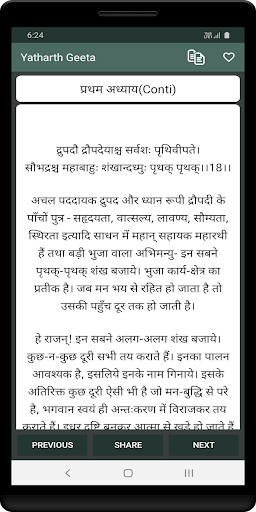 6:24
Yatharth Geeta
प्रथम अध्याय(Conti)
द्रुपदौ द्रौपदेयाश्च सर्वशः पृथिवीपते।
सौभद्रश्च महाबाहुः शंखान्दध्मुः पृथक् पृथक्।।18।।
अचल पददायक द्रुपद और ध्यान रूपी द्रौपदी के
पाँचों पुत्र - सहृदयता, वात्सल्य, लावण्य, सौम्यता,
स्थिरता इत्यादि साधन में महान् सहायक महारथी
हैं तथा बड़ी भुजा वाला अभिमन्यु- इन सबने
पृथक्-पृथक् शंख बजाये। भुजा कार्य-क्षेत्र का
प्रतीक है। जब मन भय से रहित हो जाता है तो
उसकी पहुँच दूर तक हो जाती है।
हे राजन्! इन सबने अलग-अलग शंख बजाये।
कुछ-न-कुछ दूरी सभी तय कराते हैं। इनका पालन
आवश्यक है, इसलिये इनके नाम गिनाये। इसके
अतिरिक्त कुछ दूरी ऐसी भी है जो मन-बुद्धि से परे
है, भगवान स्वयं ही अन्तःकरण में विराजकर तय
कराते हैं। इधर दृष्टि बनकर आत्मा से खड़े हो जाते हैं
PREVIOUS
SHARE
NEXT